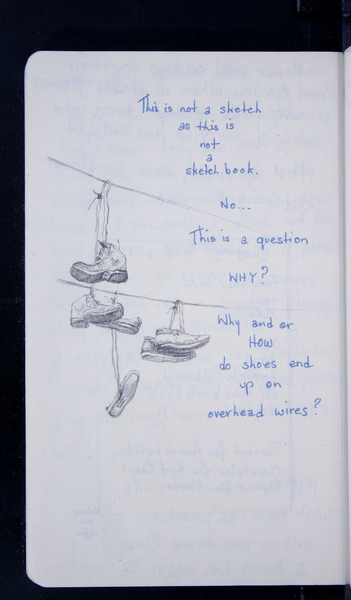 This is not a sketch
as this is
not
a
sketch book.
No...
This is a question
WHY?
Why and or
HOW
do shoes end
up on
overhead wires?